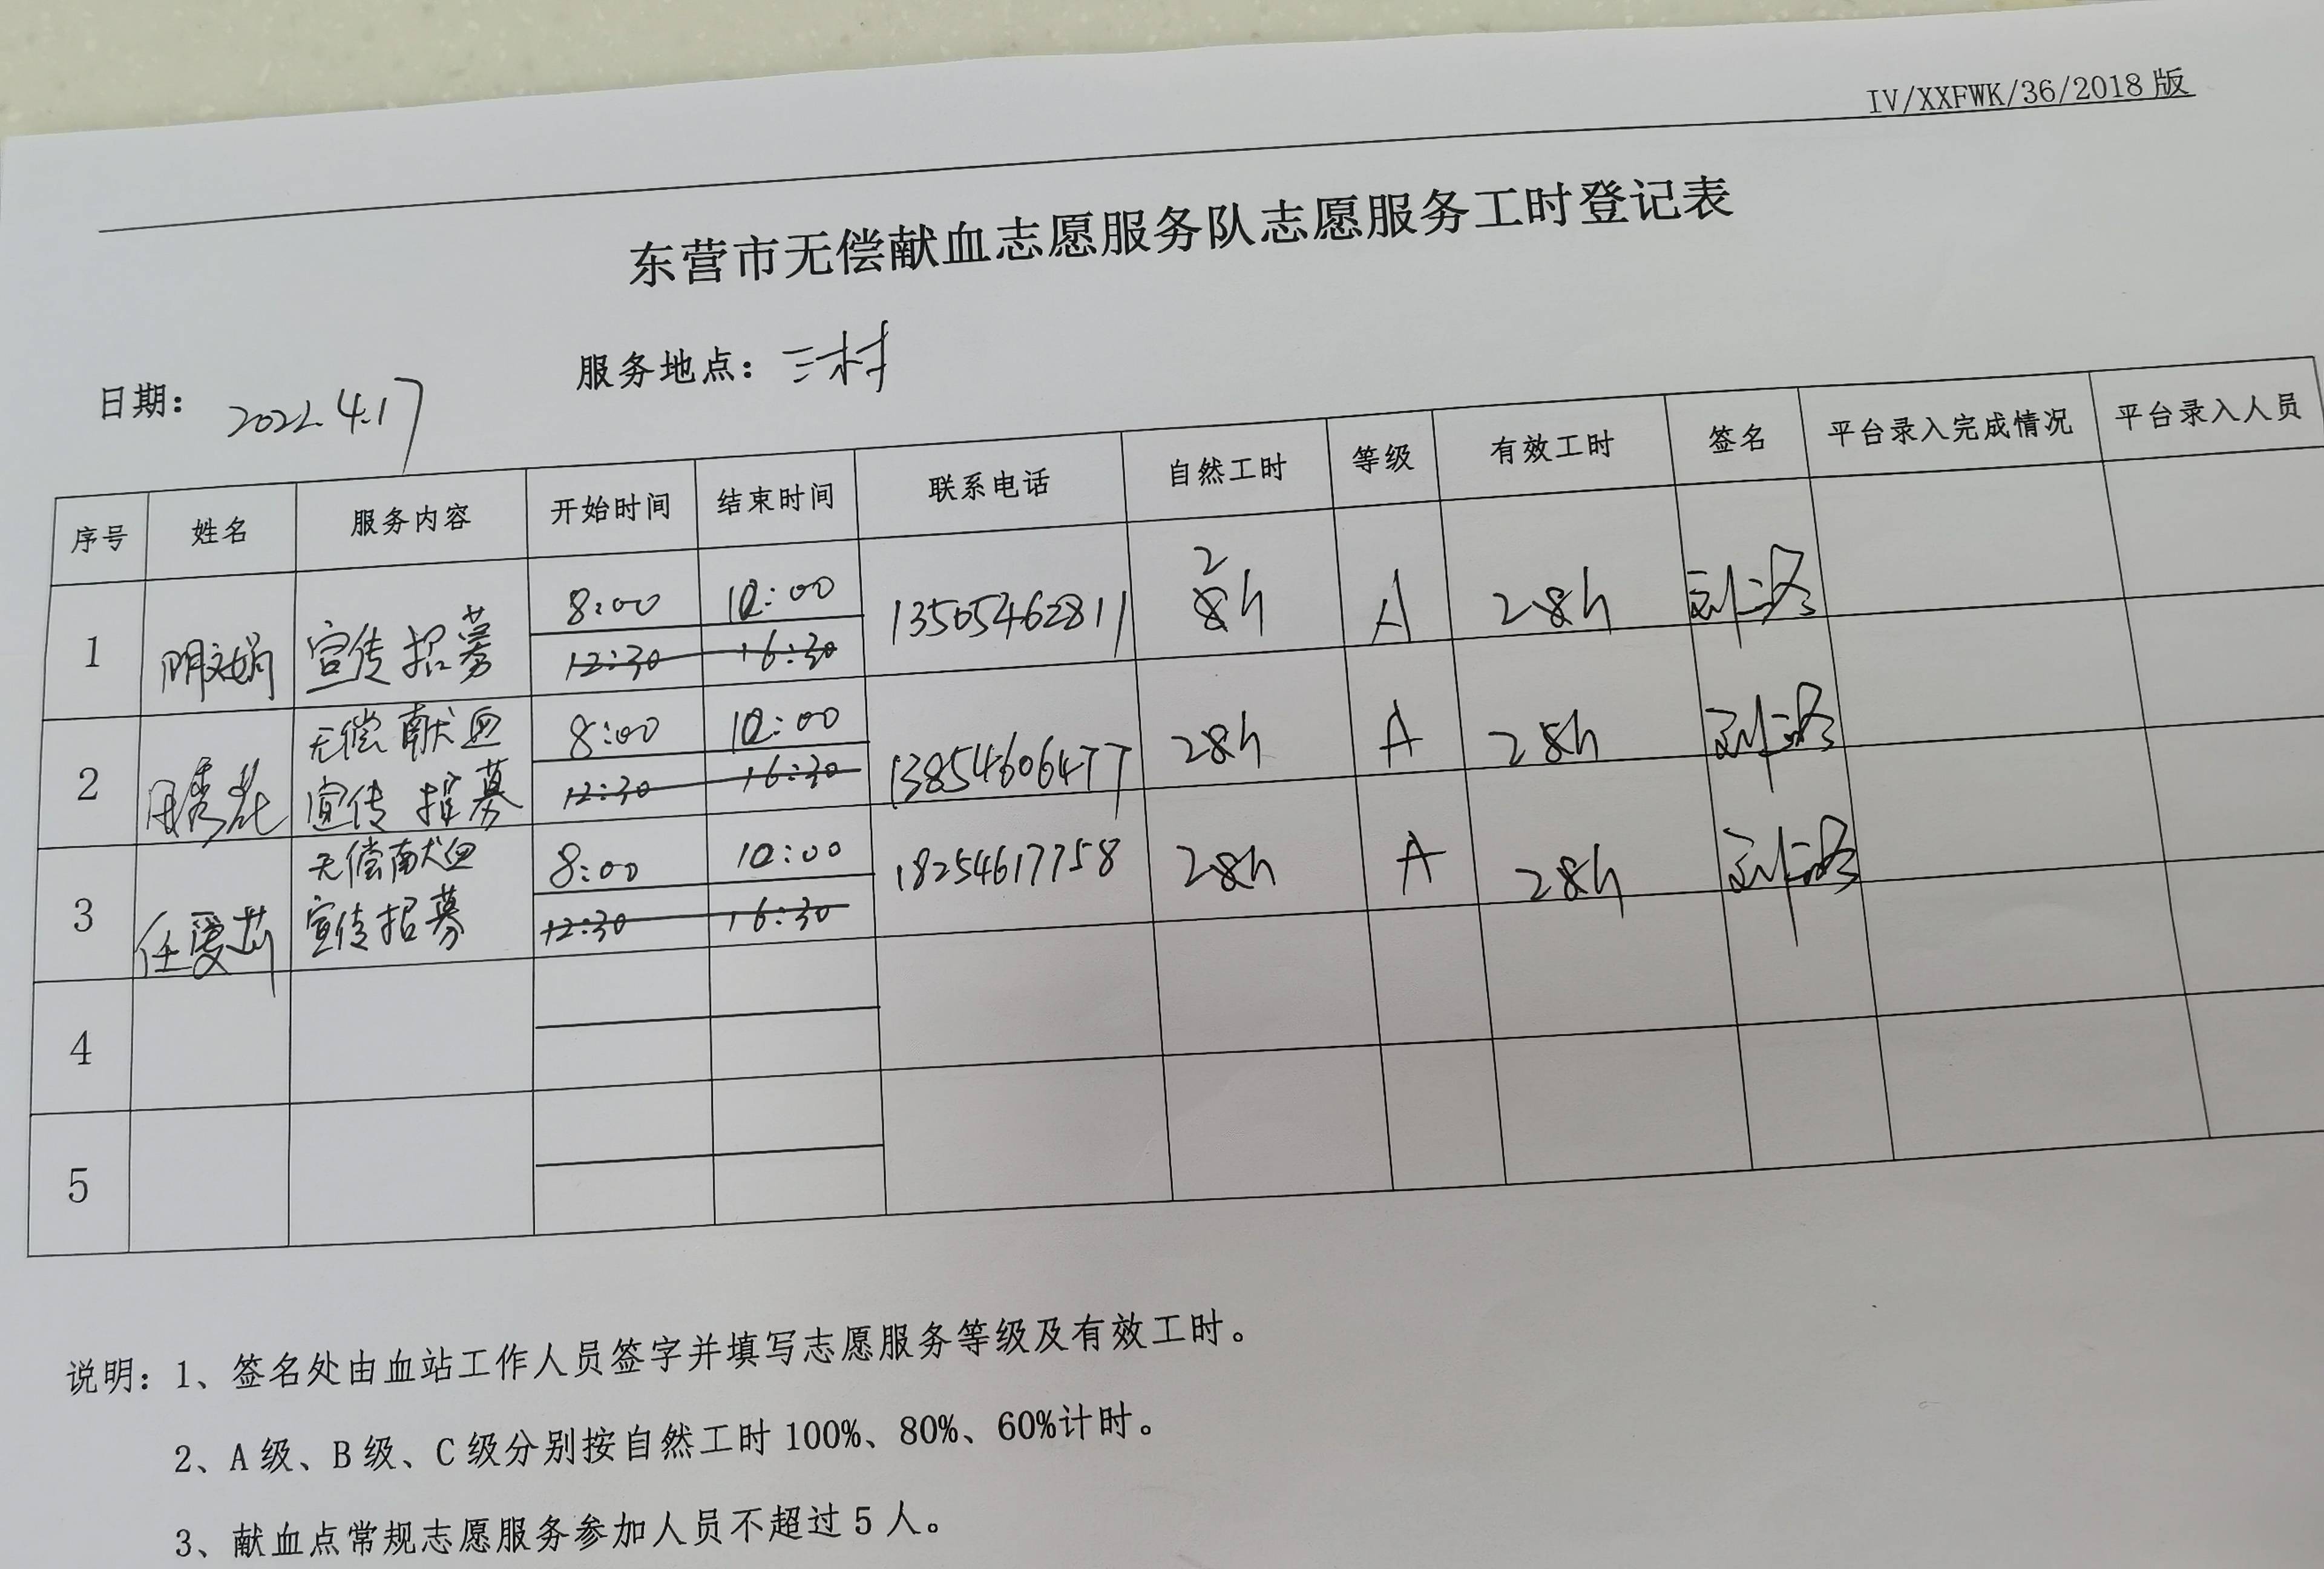 IV/XXFWK/36/2018 版
东营市无偿献血志愿服务队志愿服务工时登记表
日期： 2022.4.17 服务地点： 三村
序号 姓名 服务内容 开始时间 结束时间 联系电话 自然工时 等级 有效工时 签名 平台录入完成情况 平台录入人员
1 宣传招募 8:00 10:00 13505462811 2h A 2h
12:30 16:30
2 无偿献血 8:00 10:00 13854606477 2h A 2h
宣传招募 12:30 16:30
3 任爱芹 无偿献血 8:00 10:00 18254617758 2h A 2h
宣传招募 12:30 16:30
4
5
说明：1、签名处由血站工作人员签字并填写志愿服务等级及有效工时。
2、A 级、B 级、C 级分别按自然工时 100%、80%、60%计时。
3、献血点常规志愿服务参加人员不超过 5 人。